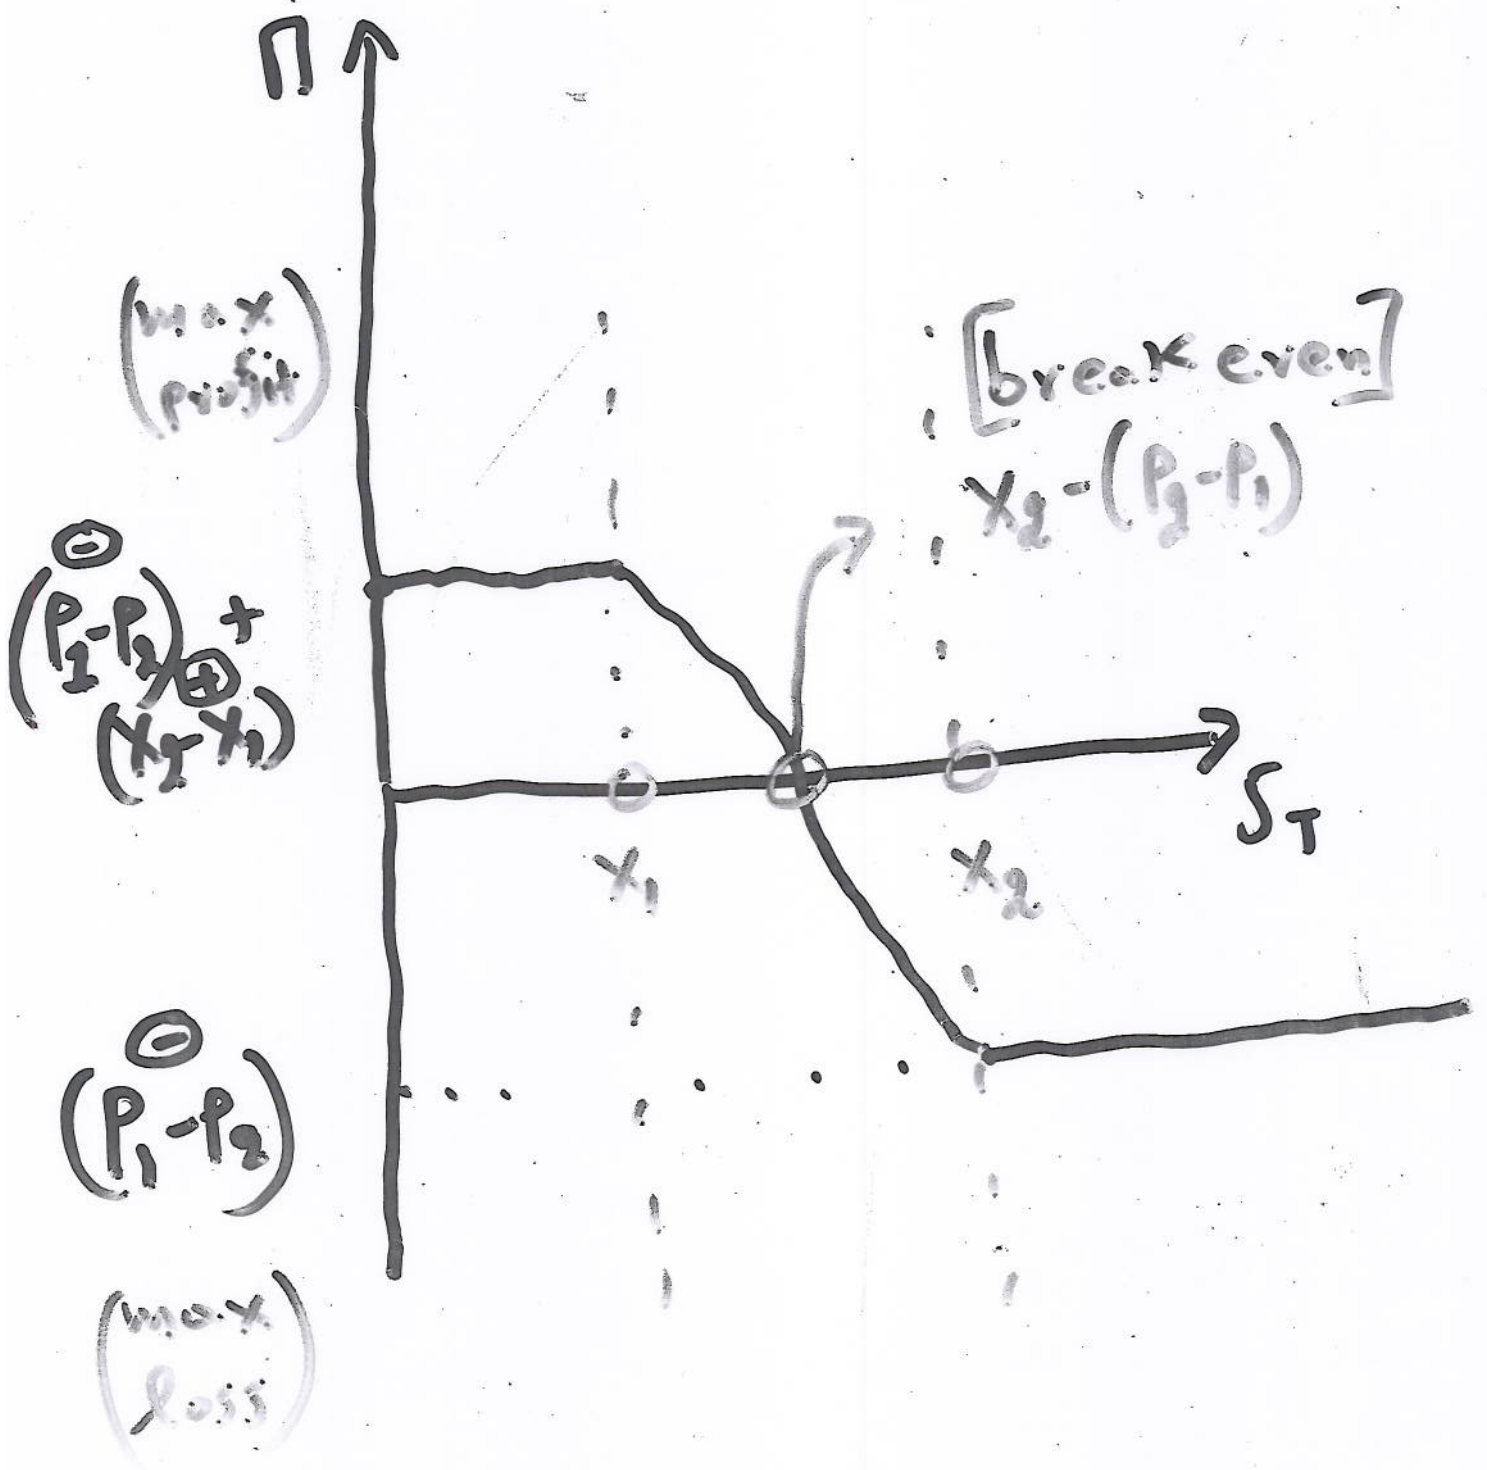 Π
(max
profit)
[break even]
X₂-(P₂-P₁)
⊖
(P₁-P₂) +
⊕
(X₂-X₁)
S_T
X₁
X₂
⊖
(P₁-P₂)
(max
loss)